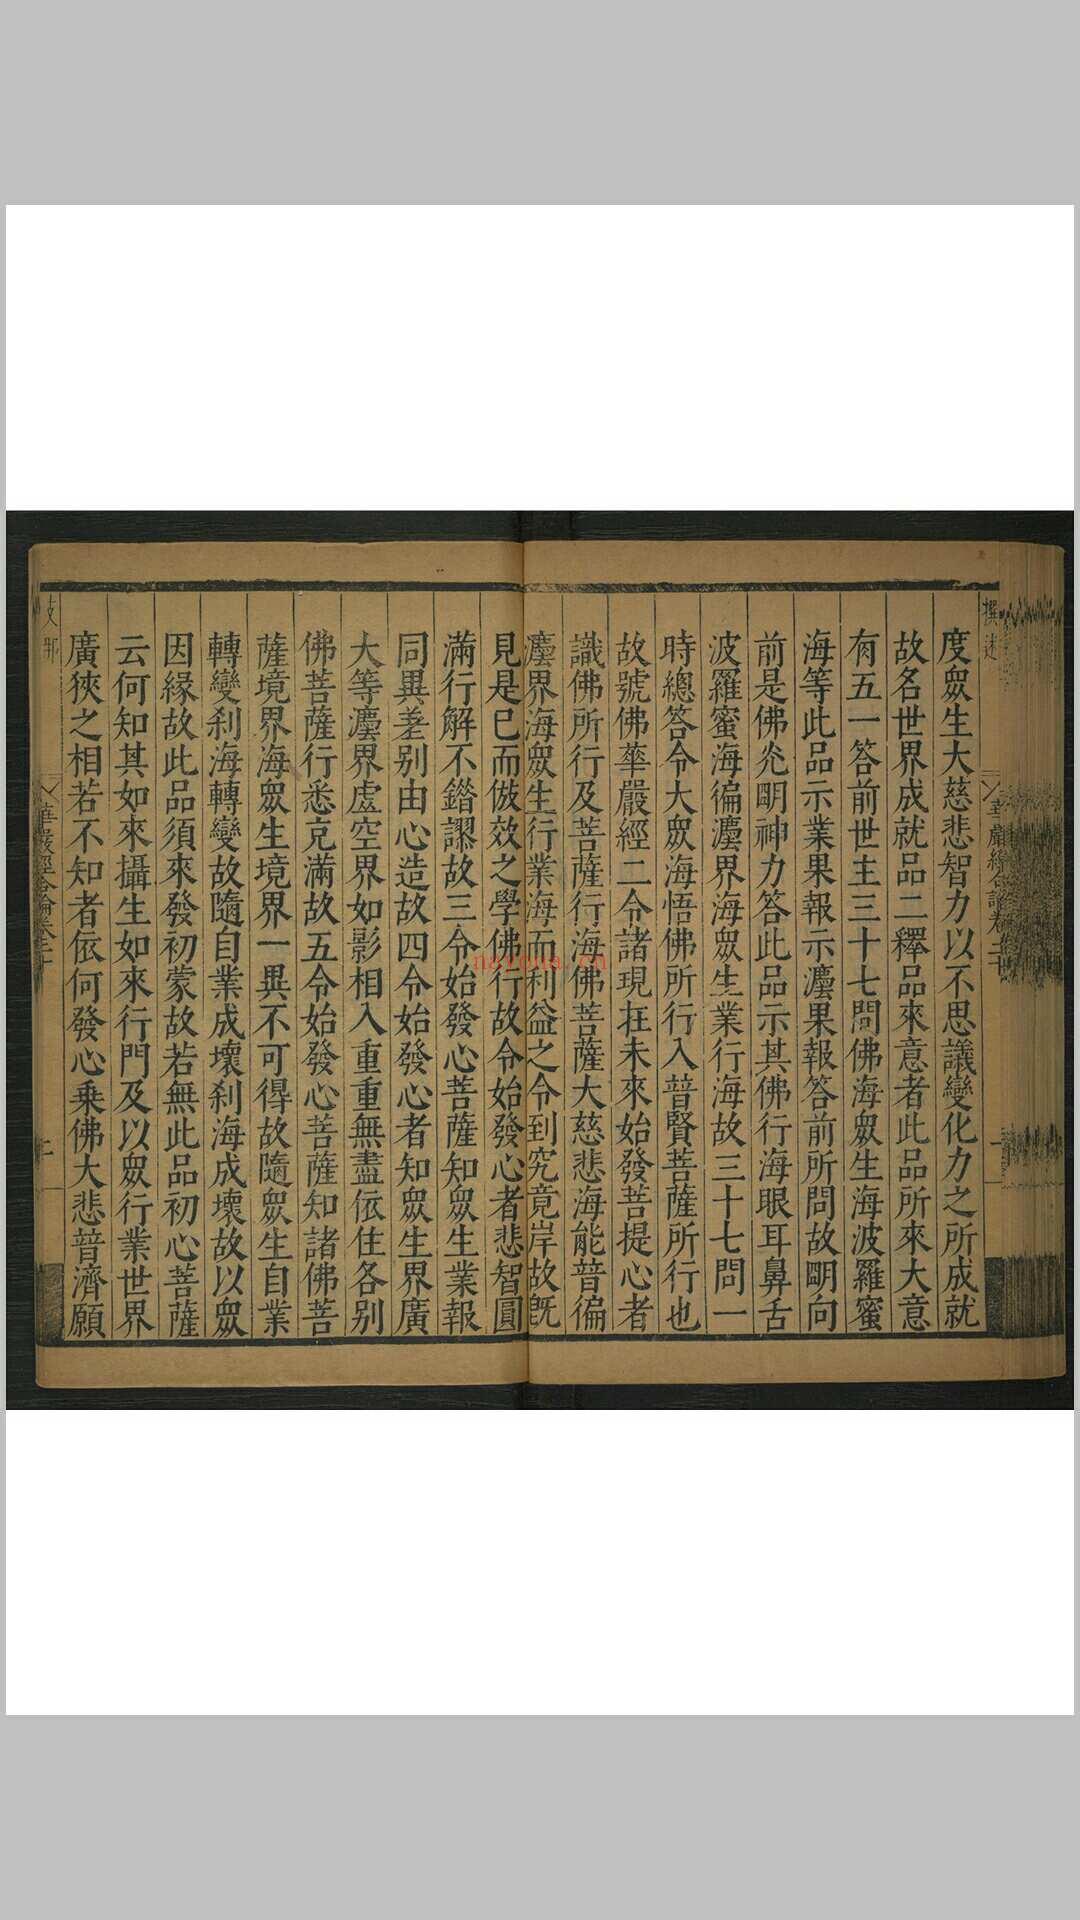 撰述
華嚴經合論卷二十
度眾生大慈悲智力以不思議變化力之所成就
故名世界成就品二釋品來意者此品所來大意
有五一答前世主三十七問佛海眾生海波羅蜜
海等此品示業果報示灋果報答前所問故朙向
前是佛光朙神力答此品示其佛行海眼耳鼻舌
波羅蜜海徧灋界海眾生業行海故三十七問一
時總答令大眾海悟佛所行入普賢菩薩所行也
故號佛華嚴經二令諸現在未來始發菩提心者
識佛所行及菩薩行海佛菩薩大慈悲海能普徧
灋界海眾生行業海而利益之令到究竟岸故旣
見是已而倣效之學佛行故令始發心者悲智圓
滿行解不錯謬故三令始發心菩薩知眾生業報
同異差別由心造故四令始發心者知眾生界廣
大等灋界虛空界如影相入重重無盡依住各別
佛菩薩行悉充滿故五令始發心菩薩知諸佛菩
薩境界海眾生境界一異不可得故隨眾生自業
轉變剎海轉變故隨自業成壞剎海成壞故以眾
因緣故此品須來發初蒙故若無此品初心菩薩
云何知其如來攝生如來行門及以眾行業世界
廣狹之相若不知者依何發心乗佛大悲普濟願
支那
華嚴經合論卷二十
navona.cn